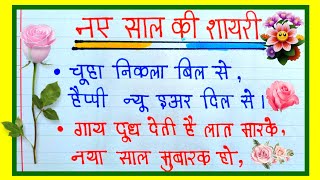 नए साल की शायरी
• चूहा निकला बिल से,
हैप्पी न्यू इअर दिल से।
• गाय दूध देती है लात मारके,
नया साल मुबारक हो,